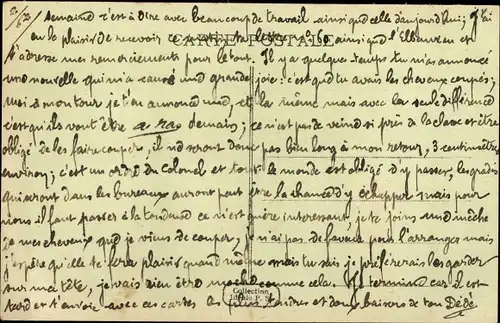 semaine c'est à dire avec beaucoup de travail ainsi que celle d'aujourd'hui; j'ai
eu le plaisir de recevoir ce ta lettre n° 60 ainsi que l'Elbeuvien et
CARTE POSTALE
t'adresse mes remerciements pour le tout. Il y a quelque temps tu m'as annoncé
une nouvelle qui m'a causé une grande joie: c'est que tu avais les cheveux coupés;
moi à mon tour je t'en annonce une, et la même mais avec la seule différence
c'est qu'ils vont être à ras demain; ce n'est pas de veine si près de la classe et être
obligé de les faire couper, il ne seront donc pas bien long à mon retour, 3 centimètres
environ; c'est un ordre du Colonel et tout le monde est obligé d'y passer, les gradés
qui seront dans les bureaux auront peut être la chance d'y échapper mais pour
nous il faut passer à la tondeuse ce n'est guère intéressant, je te joins une mèche
de mes cheveux que je viens de couper, je n'ai pas de faveur pour l'arranger mais
j'espère qu'elle te fera plaisir quand même mais tu sais je préfèrerais les garder
sur ma tête, je vais bien être moche comme cela. Je termine car il est
tard et t'envoie avec ces cartes les plus tendres et doux baisers de ton Dédé
Collection
Idéale P.S.